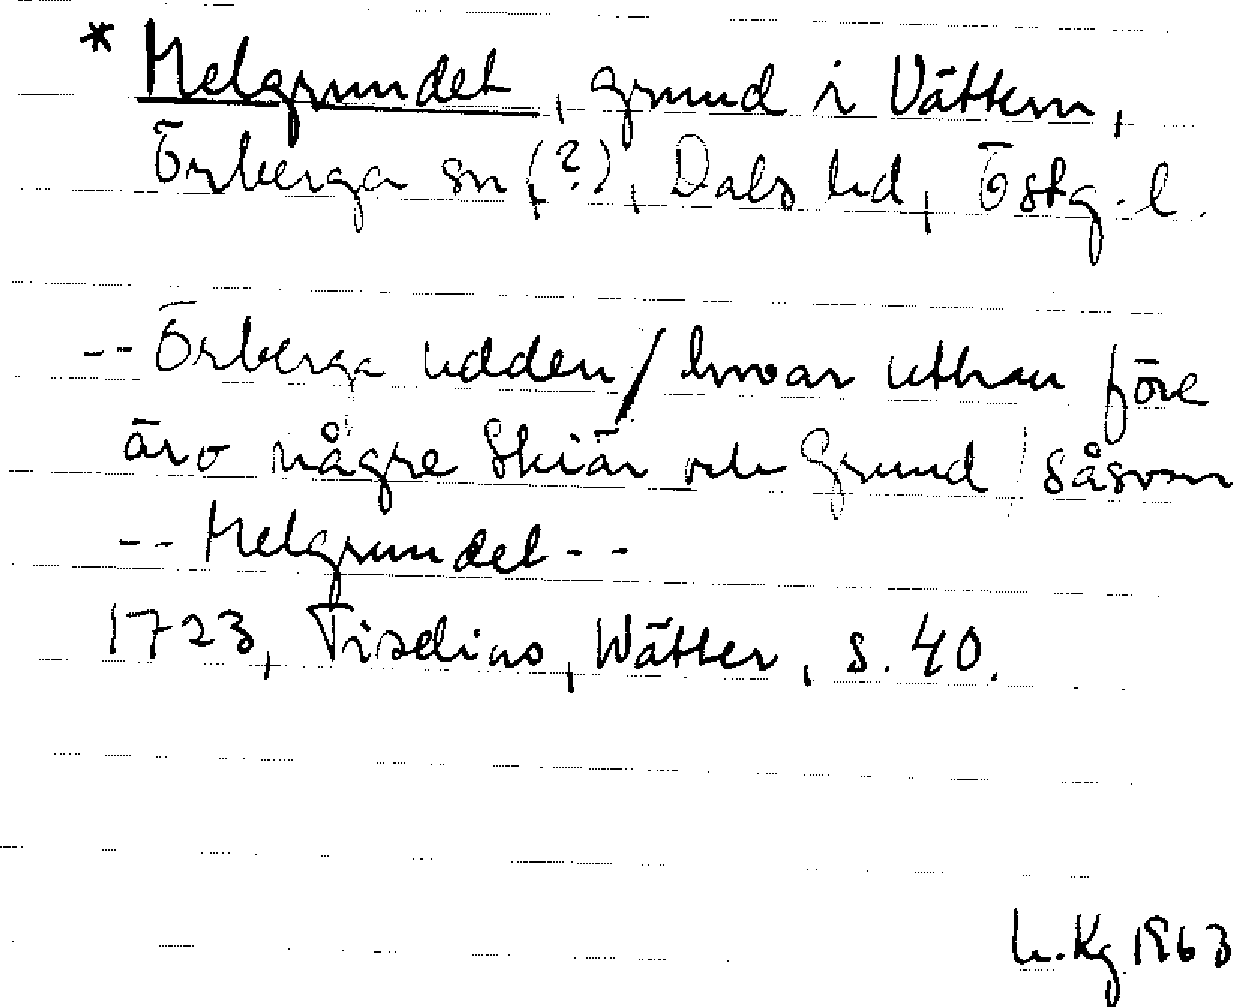 * Melgrundet, grund i Vättern,
Örberga sn (?), Dals hd, Östg. l.
-- Örberga udden / hwar uthan före
äro någre Skiär och Grund / såsom
-- Melgrundet --
1723, Tiselius, Wätter, s. 40.
h. Kg 1963